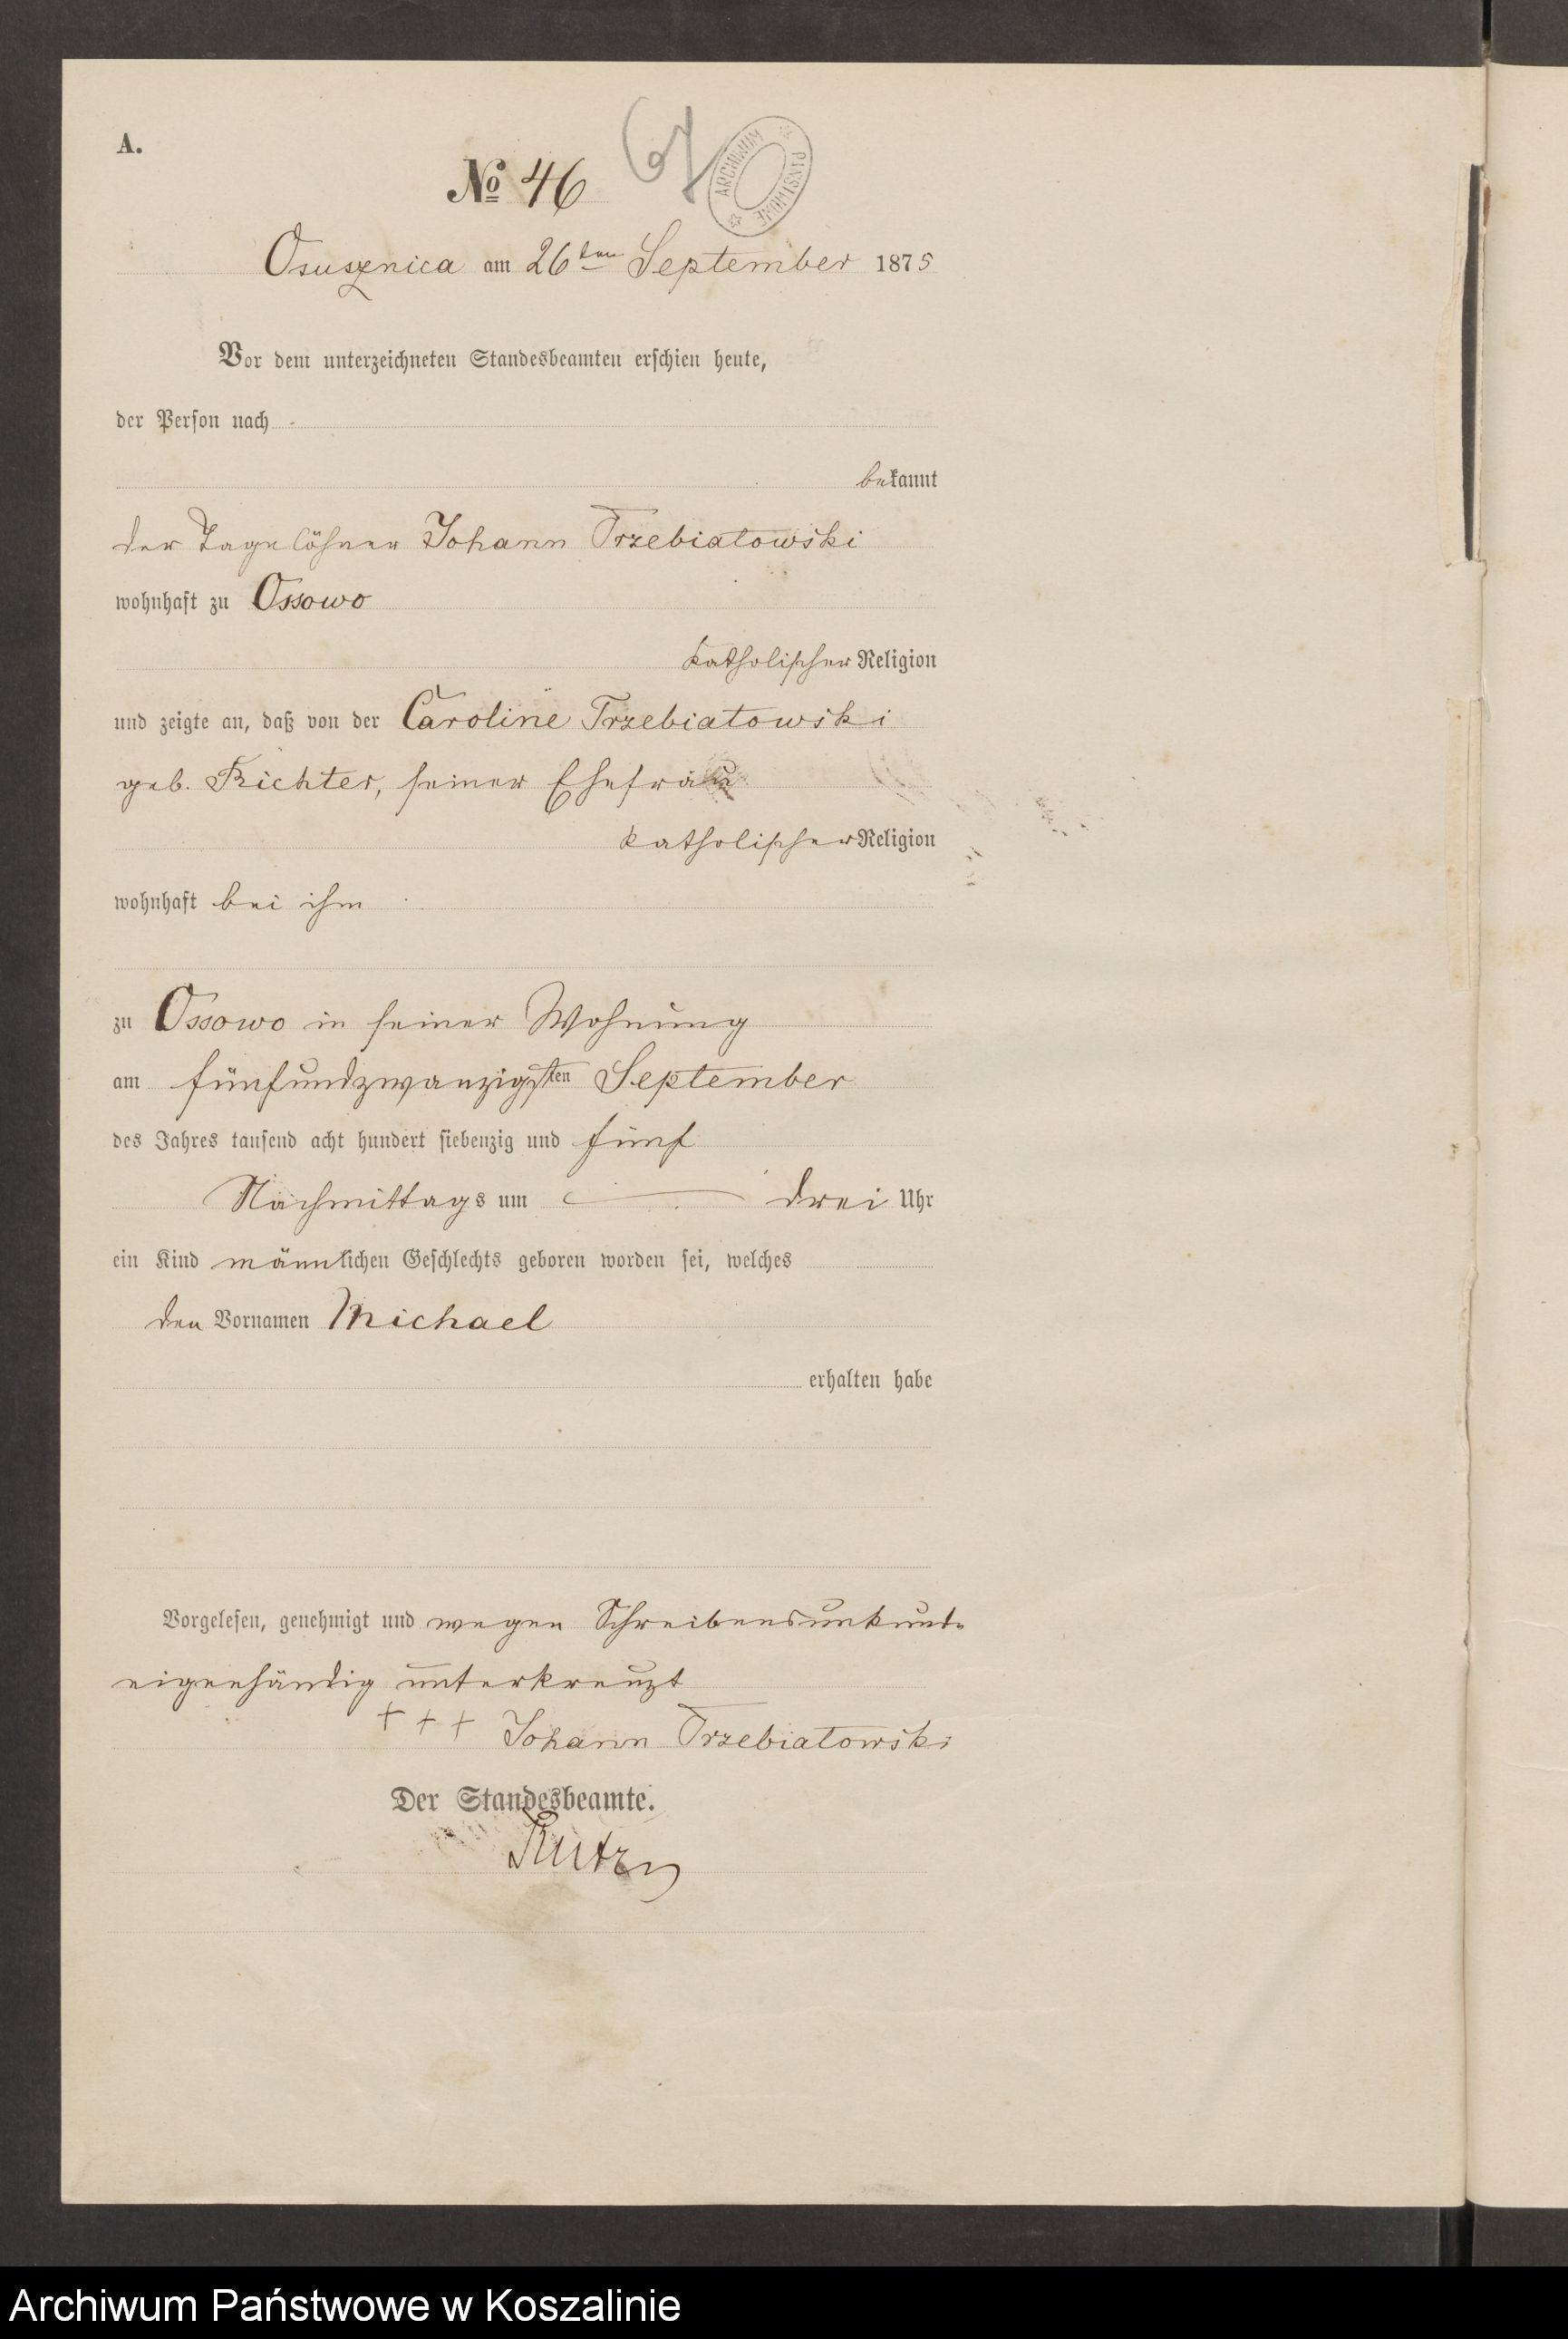 A.
67
ARCHIWUM PAŃSTWOWE
No 46
Osusznica am 26ten September 1875
Vor dem unterzeichneten Standesbeamten erschien heute,
der Person nach
bekannt
der Tagelöhner Johann Trzebiatowski
wohnhaft zu Ossowo
katholischer Religion
und zeigte an, daß von der Caroline Trzebiatowski
geb. Richter, seiner Ehefrau
katholischer Religion
wohnhaft bei ihm
zu Ossowo in seiner Wohnung
am fünfundzwanzigsten September
des Jahres tausend acht hundert siebenzig und fünf
Nachmittags um drei Uhr
ein Kind männlichen Geschlechts geboren worden sei, welches
den Vornamen Michael
erhalten habe
Vorgelesen, genehmigt und wegen Schreibensunkunde
eigenhändig unterkreuzt
+ + + Johann Trzebiatowski
Der Standesbeamte.
Archiwum Państwowe w Koszalinie